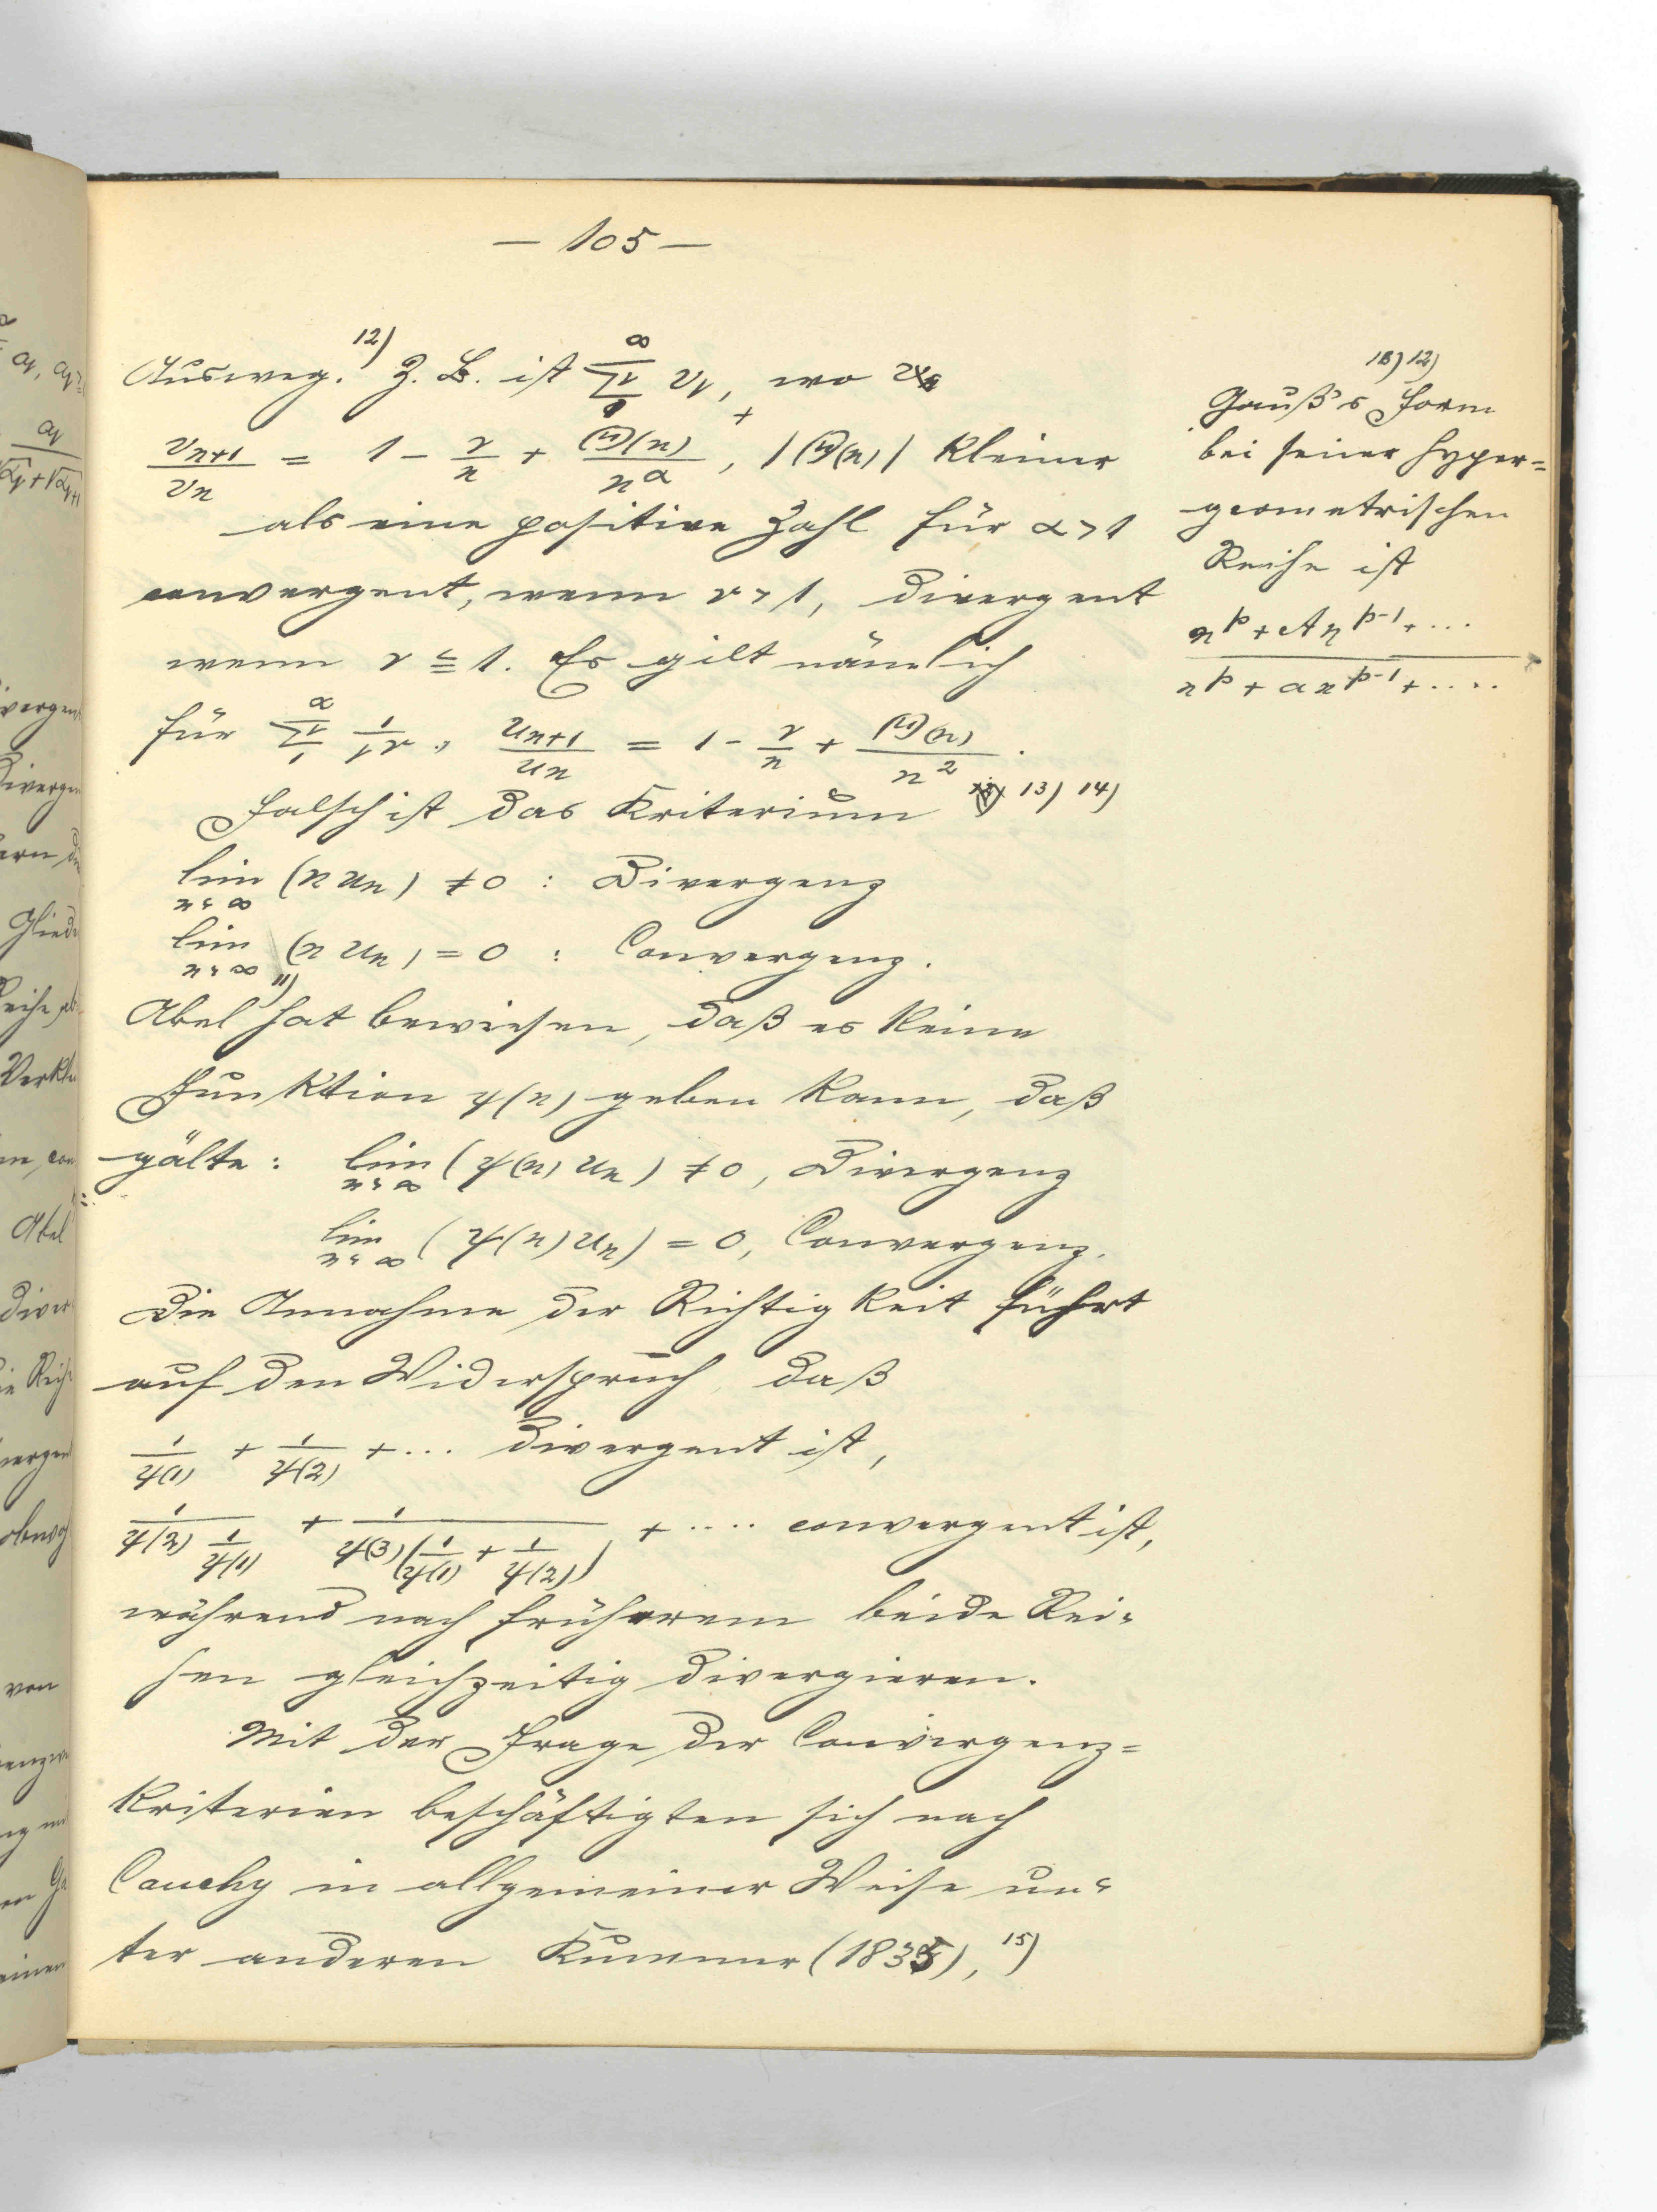 — 105 —
Ausweg.¹²⁾ Z. B. ist ∑₁^∞ vν, wo
vₙ₊₁/vₙ = 1 − r/n + Θ(n)/n^α, |Θ(n)| kleiner
als eine positive Zahl für α > 1
convergent, wenn r > 1, divergent
wenn r ≦ 1. Es gilt nämlich
für ∑₁^∞ 1/ν^r, uₙ₊₁/uₙ = 1 − r/n + Θ(n)/n².
Falsch ist das Kriterium 13) 14)
lim n=∞ (n uₙ) ≠ 0 : Divergenz
lim n=∞ (n uₙ) = 0 : Convergenz.
Abel¹¹⁾ hat bewiesen, daß es keine
Funktion ψ(n) geben kann, daß
gälte: lim n=∞ (ψ(n) uₙ) ≠ 0, Divergenz
lim n=∞ (ψ(n) uₙ) = 0, Convergenz.
Die Annahme der Richtigkeit führt
auf den Widerspruch, daß
1/ψ(1) + 1/ψ(2) + ... divergent ist,
1/(ψ(2) 1/ψ(1)) + 1/(ψ(3)(1/ψ(1) + 1/ψ(2))) + .... convergent ist,
während nach früherem beide Rei=
hen gleichzeitig divergieren.
Mit der Frage der Convergenz=
kriterien beschäftigten sich nach
Cauchy in allgemeiner Weise un=
ter anderen Kummer (1835), 15)
12)
Gauß's Form
bei seiner hyper=
geometrischen
Reihe ist
(n^p + A n^(p-1) + ...)/(n^p + a n^(p-1) + ....)